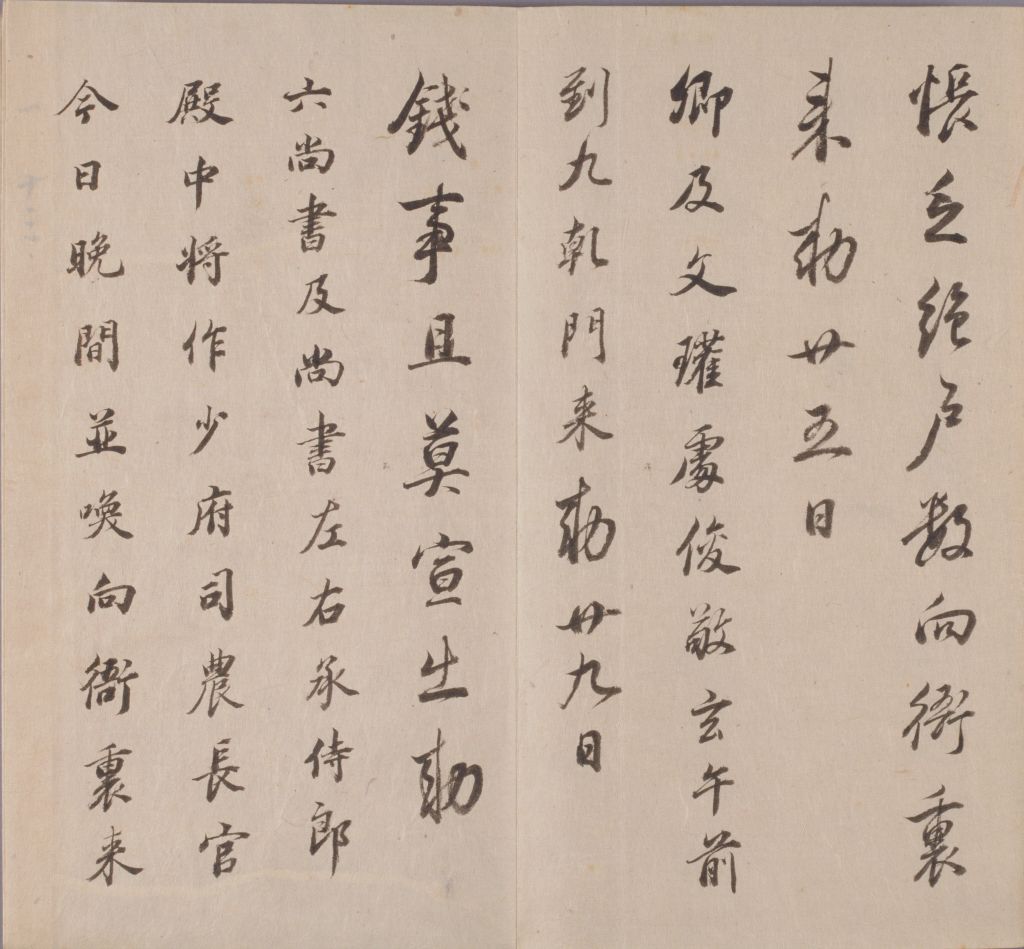 悵之絕戶數向衙裏
来勅廿五日
卿及文瓘處俊敬玄午前
到九乾門来勅廿九日
錢事且莫宣出勅
六尚書及尚書左右承侍郎
殿中将作少府司農長官
今日晚間並喚向衙裏来